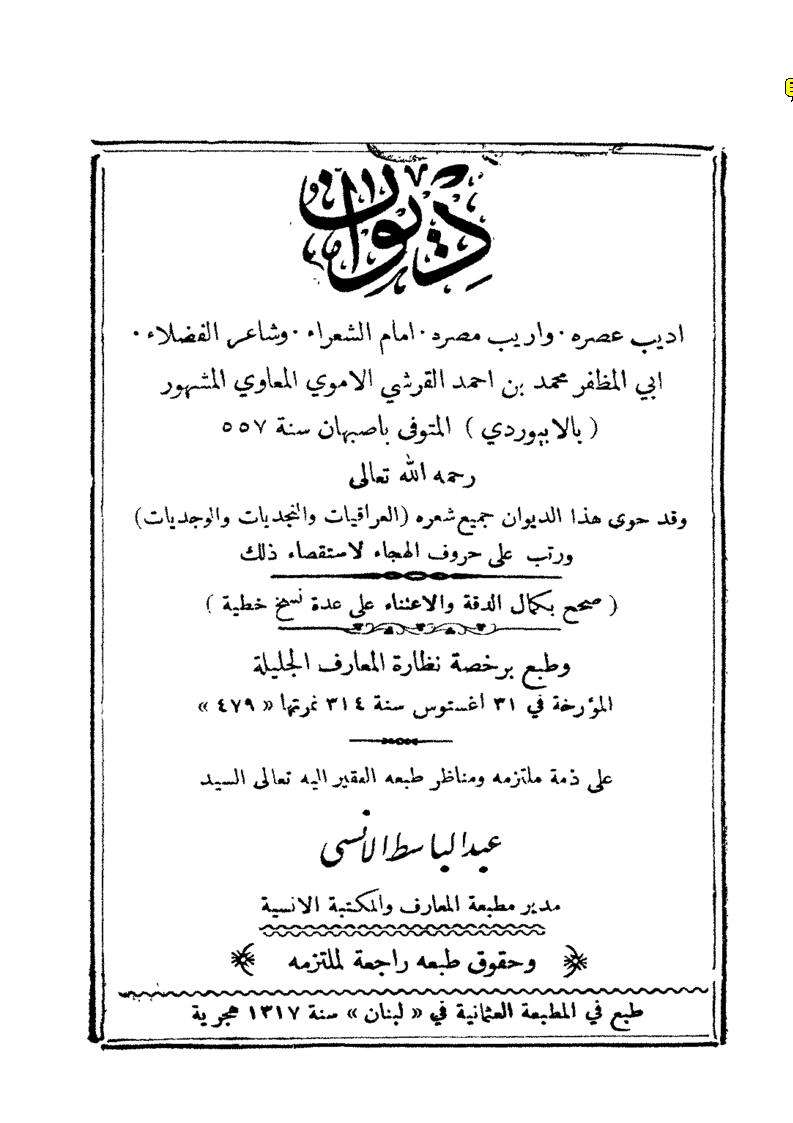 ديوان
اديب عصره · واريب مصره · امام الشعراء · وشاعر الفضلاء ·
ابي المظفر محمد بن احمد القرشي الاموي المعاوي المشهور
( بالابيوردي ) المتوفى باصبهان سنة ٥٥٧
رحمه الله تعالى
وقد حوى هذا الديوان جميع شعره (العراقيات والنجديات والوجديات)
ورتب على حروف الهجاء لاستقصاء ذلك
( صحح بكمال الدقة والاعتناء على عدة نسخ خطية )
وطبع برخصة نظارة المعارف الجليلة
المؤرخة في ٣١ اغستوس سنة ٣١٤ نمرتها « ٤٧٩ »
على ذمة ملتزمه ومناظر طبعه الفقير اليه تعالى السيد
عبد الباسط الانسي
مدير مطبعة المعارف والمكتبة الانسية
وحقوق طبعه راجعة لملتزمه
طبع في المطبعة العثمانية في « لبنان » سنة ١٣١٧ هجرية